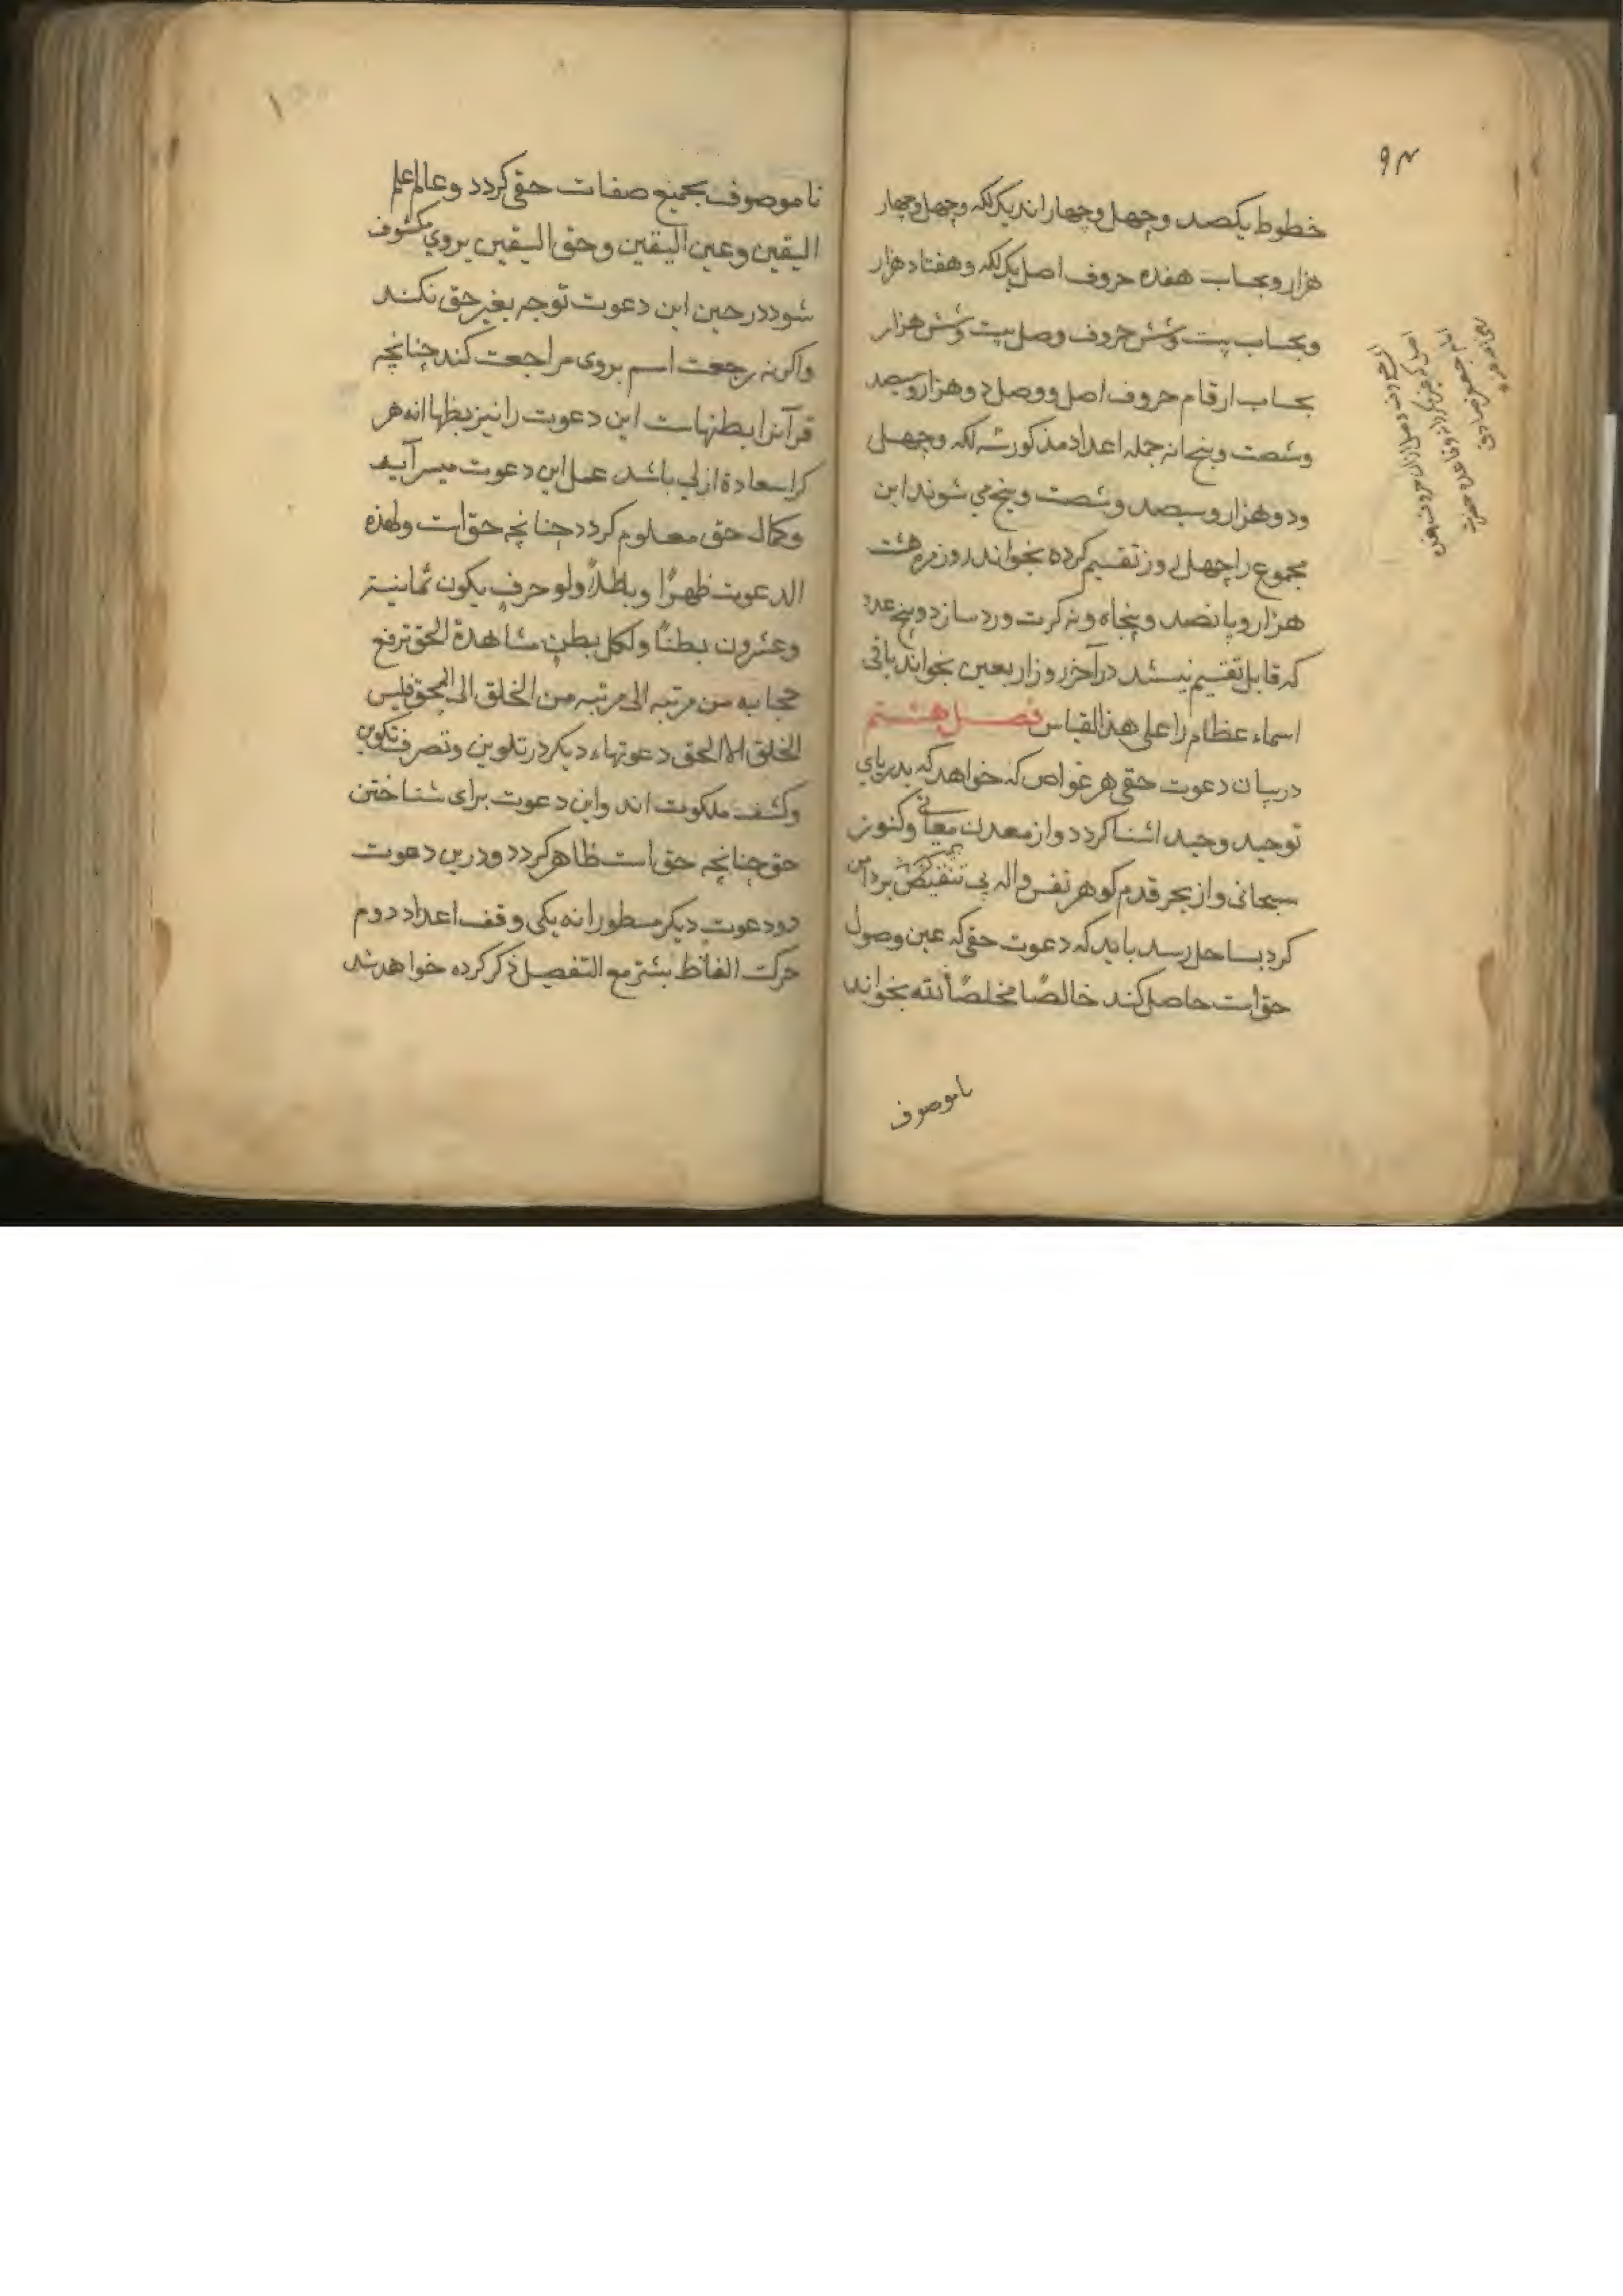 خطوط یکصد وچهل وچهار اند یک لکه وچهل وچهار
هزار وبحساب هفده حروف اصل یک لکه وهفتاد هزار
وبحساب بیست وشش حروف وصل بیست وشش هزار
بحساب ارقام حروف اصل ووصل دوهزار وسیصد
وشصت وپنج انه جمله اعداد مذکور سه لکه وچهل
ودو هزار وسیصد وشصت وپنج می شوند این
مجموع را چهل روز تقسیم کرده بخواند روز مره هشت
هزار وپانصد وپنجاه ونه کرت ورد سازد وپنج عدد
که قابل تقسیم نیستند در آخر روز اربعین بخواند باقی
اسماء عظام را علی هذا القیاس فصل هشتم
دربیان دعوت حقی هر غواص که خواهد که بدریای
توحید وحید اشنا کردد واز معدن معانی وکنوز
سبحانی واز بحر قدم کوهر نفس واله بی بر دامن
کرد بساحل رسد باید که دعوت حقی که عین وصول
حق است حاصل کند خالصًا مخلصًا لله بخواند
تا موصوف
۹۴
امام جعفر صادق
تا موصوف بجمیع صفات حقی کردد وعالم علم
الیقین وعین الیقین وحق الیقین بروی مکشوف
شود درحین این دعوت توجه بغیر حق نکند
واکرنه رجعت اسم بروی مراجعت کند چنانچه
قرآنرا بطنهاست این دعوت را نیز بطنها انه هر
کرا سعادة ازلی باشد عمل این دعوت میسر آید
وکمال حق معلوم کردد چنانچه حق است ولهذه
الدعوت ظهرًا وبطنًا ولو حرف یکون ثمانیة
وعشرون بطنًا ولکل بطن مشاهدة الحق ترفع
حجابه من مرتبه الی مرتبه من الخلق الی الحق فلیس
الخلق الا الحق دعوتهاء دیکر در تلوین وتصرف تکوین
وکشف ملکوت اند واین دعوت برای شناختن
حق چنانچه حق است ظاهر کردد ودرین دعوت
دو دعوت دیکر مسطور انه یکی وقف اعداد دوم
حرکت الفاظ بشتر مع التفصیل ذکر کرده خواهد شد